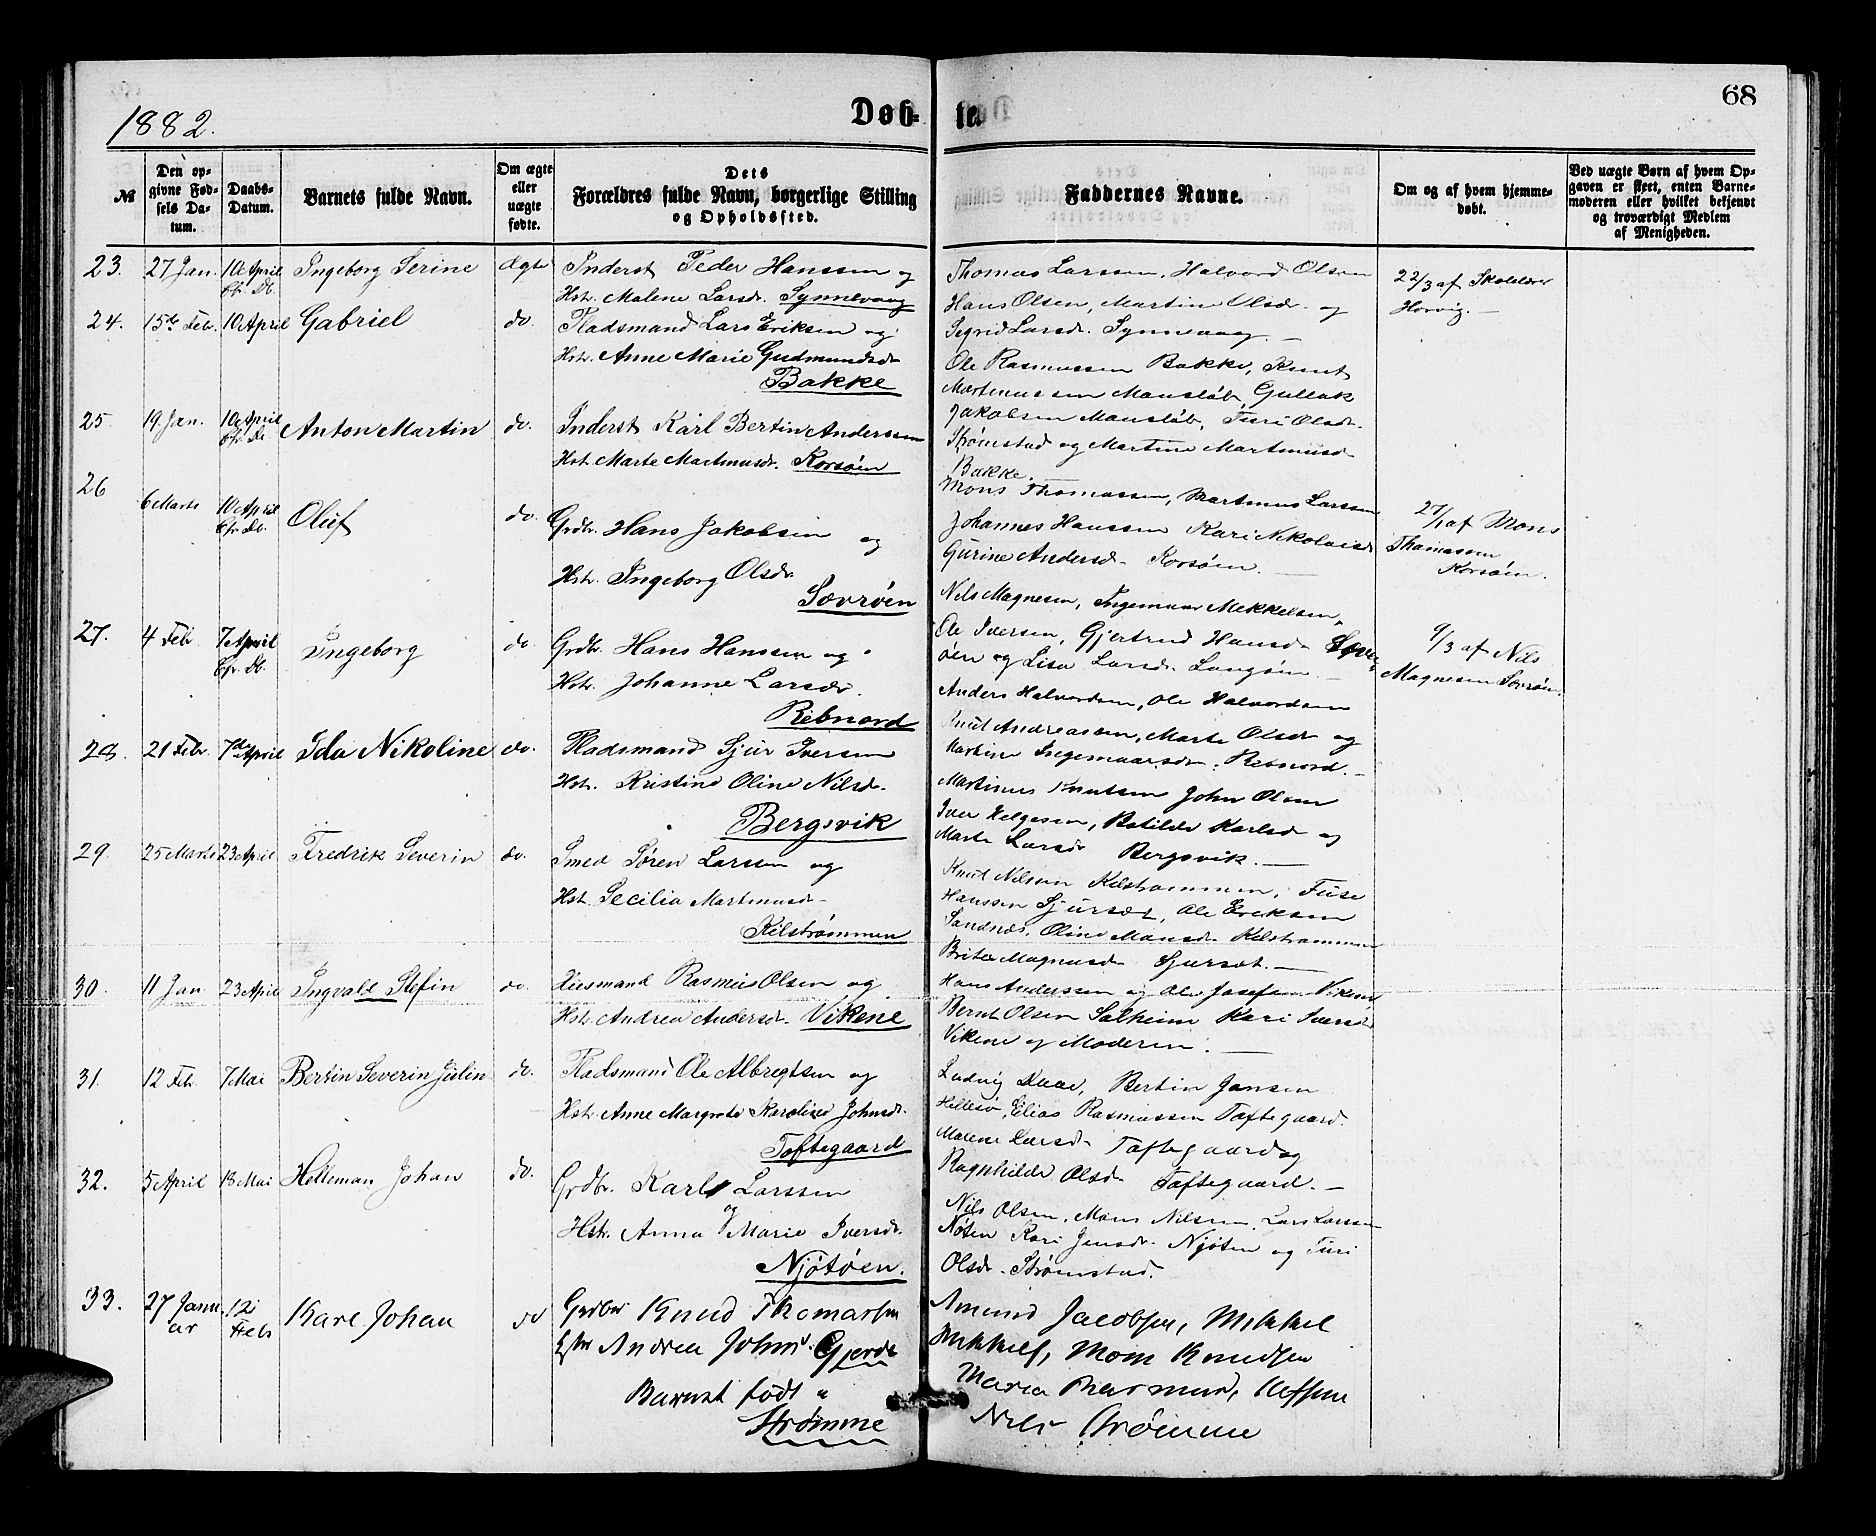 1882.
Døb-
te.
68
№
Den op-
givne Fød-
sels Da-
tum.
Daabs-
Datum.
Barnets fulde Navn.
Om ægte
eller
uægte
fødte.
Dets
Forældres fulde Navn, borgerlige Stilling
og Opholdssted.
Faddernes Navne.
Om og af hvem hjemme-
døbt.
Ved uægte Børn af hvem Op-
gaven er skeet, enten Barne-
moderen eller hvilket bekjendt
og troværdigt Medlem
af Menigheden.
23. 27 Jan. 10 April Ingeborg Serine Ægte Inderst Peder Hanssen og
Hst. Malene Larsdr. Synnevaag
Thomas Larssen, Halvord Olsen
Hans Olsen, Martine Olsdr. og
Sigrid Larsdr. Synnevaag.
22/3 af Skolelær
Horvig.
24. 15de Feb. 10 April Gabriel do. Pladsmand Lars Eriksen og
Hst. Anne Marie Gudmundsdr
Bakke
Ole Rasmussen Bakke, Knut
Martinussen Mansløb, Gullak
Jakobsen Mansløb, Turi Olsdr.
Strømstad og Martine Martinusd
Bakke.
25 19. Jan. 10 April Anton Martin do. Inderst Karl Bertin Anderssen
Hst. Marte Martinusdr. Korsøen
Mons Thomassen, Martinus Larssen
Johannes Hanssen Kari Nikolaisd
Gurine Andersdr. Korsøen.
27/1 af Mons
Thomassen
Korsøen.
26 6 Marts 10 April Oluf do. Grdbr. Hans Jakobsen og
Hst. Ingeborg Olsdr.
Sævrøen
Nils Magnesen, Ingemaar Mikkelsen,
Ole Iversen, Gjertrud Hansdr. Sævr
øen og Lisa Larsdr. Langøen.
9/3 af Nils
Magnesen Sævrøen.
27. 4 Feb 7 April Ingeborg do. Grdbr. Hans Hanssen og
Hst. Johanne Larsdr.
Rebnord
Anders Halvordsen, Ole Halvordsen
Knut Andreassen, Marte Olsdr og
Martine Ingemaarsdr. Rebnord.
28. 21 Feb. 7de April Ida Nikoline do. Pladsmand Sjur Iversen
Hst. Kristine Oline Nilsdr.
Bergsvik
Martinus Knutsen John Olsen
Iver Helgesen, Botilde Karlsd og
Marte Larsdr Bergsvik.
29. 25 Marts 23 April Fredrik Severin do. Smed Søren Larssen og
Hst. Secilia Martinusdr.
Kilstrømmen
Knut Nilsen Kilstrømmen,
Hanssen Sjursæt, Ole Eriksen
Sandnæs, Oline Monsdr. Kilstrømmen
Brita Magnusdr Sjursæt.
30. 11 Jan 23 April Ingvald Stefin do. Rasmus Olsen og
Hst. Andrea Andersdr. Vikene
Hans Anderssen og Ole Josefsen Vikene
Bernt Olsen Solheim Kari Iversd
Vikene og Moderen.
31. 12 Feb. 7 Mai Bertin Severin Julin do. Pladsmand Ole Albregtsen og
Hst. Anne Margrete Karoline Johnsdr.
Toftegaard
Ludvig Kaae, Bertin Jansen
Hellesø, Elias Rasmussen Toftegaard.
Malene Larsdr Toftegaard og
Ragnhilde Olsdr Toftegaard.
32. 5 April 18 Mai Helleman Johan do. Grdbr. Karl Larssen
og
Hst. Anna Marie Iversdr.
Njøtøen.
Nils Olsen, Mons Nilsen, Lars Larsen
Nøten Kari Jensdr. Njøten og Turi
Olsdr. Strømstad.
33. 27 Janu
ar 12
Feb Karl Johan do Grdbr Knud Thomassen
Hstr Andrea Johnsd. Gjerde
Barnet født
Strømme
Amund Jacobsen, Mikkel
Mikkels, Mons Knudsen
Maria Rasmusd,
Nils Strømme